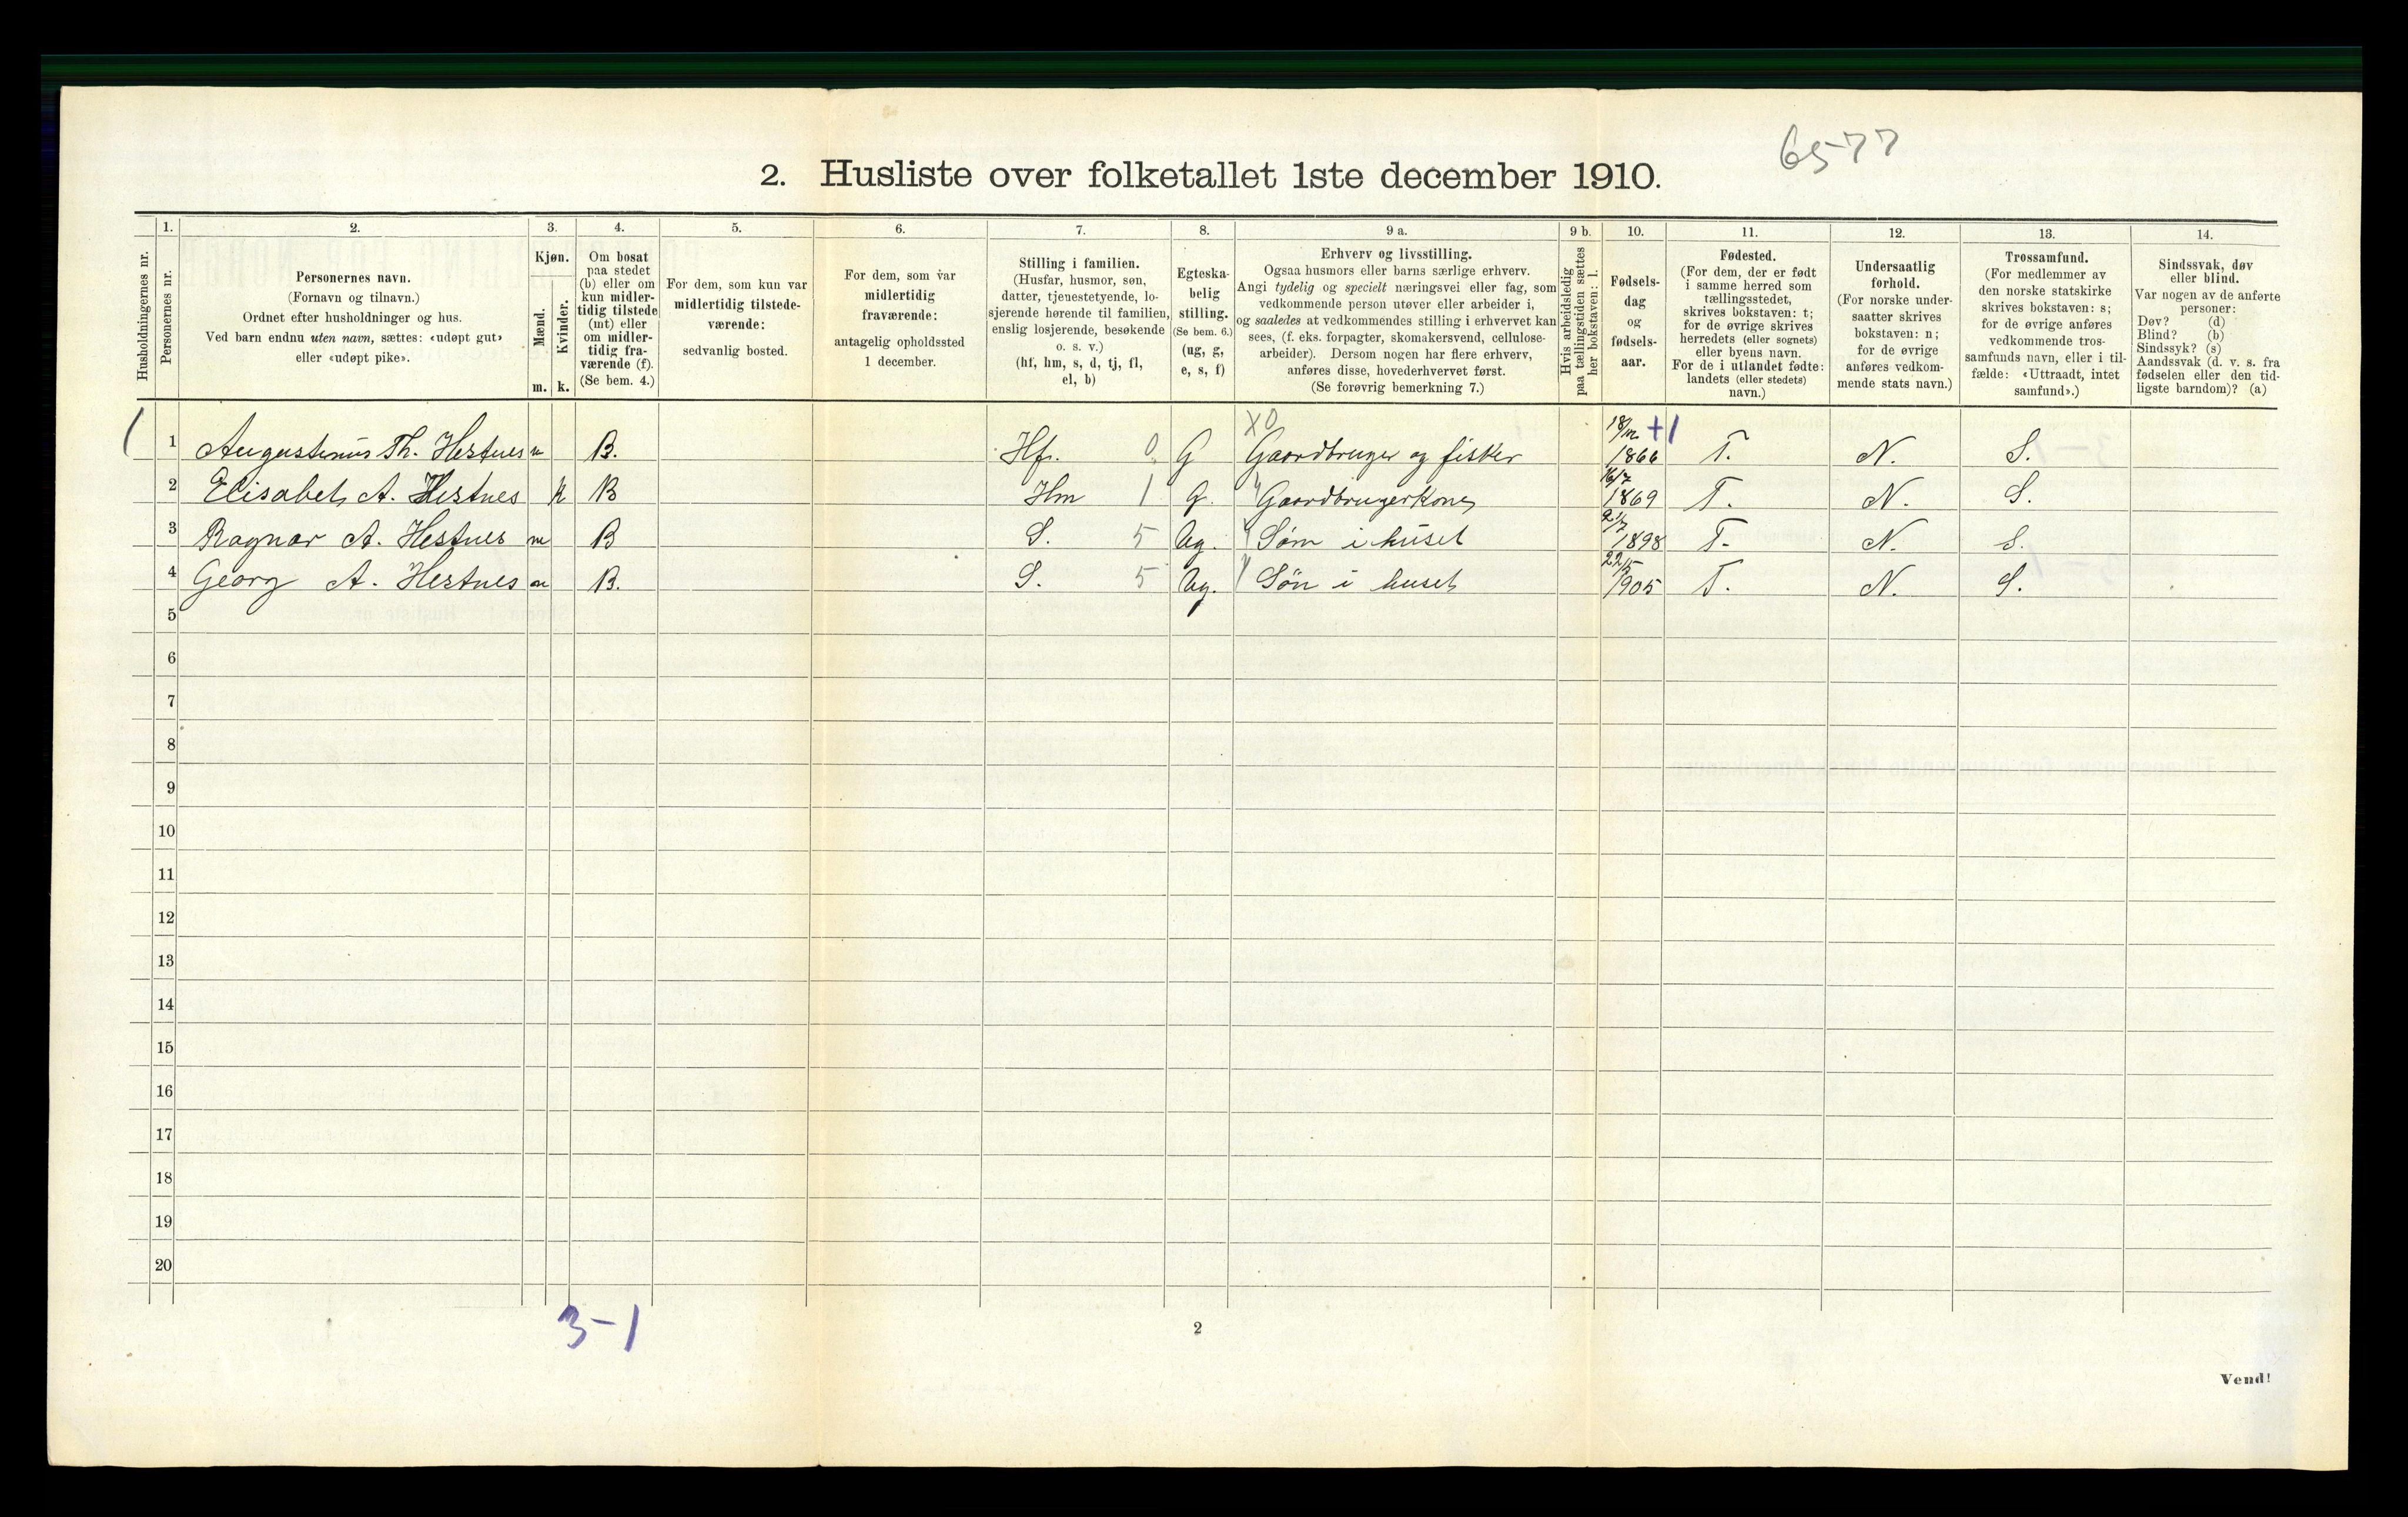 6577
2. Husliste over folketallet 1ste december 1910.
Husholdningernes nr.
1.
Personernes nr.
2.
Personernes navn.
(Fornavn og tilnavn.)
Ordnet efter husholdninger og hus.
Ved barn endnu uten navn, sættes: «udøpt gut»
eller «udøpt pike».
3.
Kjøn.
Mænd.
Kvinder.
m. k.
4.
Om bosat
paa stedet
(b) eller om
kun midler-
tidig tilstede
(mt) eller
om midler-
tidig fra-
værende (f).
(Se bem. 4.)
5.
For dem, som kun var
midlertidig tilstede-
værende:
sedvanlig bosted.
6.
For dem, som var
midlertidig
fraværende:
antagelig opholdssted
1 december.
7.
Stilling i familien.
(Husfar, husmor, søn,
datter, tjenestetyende, lo-
sjerende hørende til familien,
enslig losjerende, besøkende
o. s. v.)
(hf, hm, s, d, tj, fl,
el, b)
8.
Egteska-
belig
stilling.
(Se bem. 6.)
(ug, g,
e, s, f)
9 a.
Erhverv og livsstilling.
Ogsaa husmors eller barns særlige erhverv.
Angi tydelig og specielt næringsvei eller fag, som
vedkommende person utøver eller arbeider i,
og saaledes at vedkommendes stilling i erhvervet kan
sees, (f. eks. forpagter, skomakersvend, cellulose-
arbeider). Dersom nogen har flere erhverv,
anføres disse, hovederhvervet først.
(Se forøvrig bemerkning 7.)
9 b.
Hvis arbeidsledig
paa tællingstiden sættes
her bokstaven: l.
10.
Fødsels-
dag
og
fødsels-
aar.
11.
Fødested.
(For dem, der er født
i samme herred som
tællingsstedet,
skrives bokstaven: t;
for de øvrige skrives
herredets (eller sognets)
eller byens navn.
For de i utlandet fødte:
landets (eller stedets)
navn.)
12.
Undersaatlig
forhold.
(For norske under-
saatter skrives
bokstaven: n;
for de øvrige
anføres vedkom-
mende stats navn.)
13.
Trossamfund.
(For medlemmer av
den norske statskirke
skrives bokstaven: s;
for de øvrige anføres
vedkommende tros-
samfunds navn, eller i til-
fælde: «Uttraadt, intet
samfund».)
14.
Sindssvak, døv
eller blind.
Var nogen av de anførte
personer:
Døv? (d)
Blind? (b)
Sindssyk? (s)
Aandssvak (d. v. s. fra
fødselen eller den tid-
ligste barndom)? (a)
X0
18/12 +1
1 Augustinus Th. Hestnes m B. Hf. 0 G Gaardbruger og fisker 1866 T. N. S.
16/7
2 Elisabet A. Hestnes k B Hm 1 G. Gaardbrugerkone 1869 T. N. S.
21/7
3 Ragnar A. Hestnes m B S. 5 Ug. Søn i huset 1898 T. N. S.
22/5
4 Georg A. Hestnes m B. S. 5 Ug. Søn i huset 1905 T. N. S.
5
6
7
8
9
10
11
12
13
14
15
16
17
18
19
20
3-1
2
Vend!